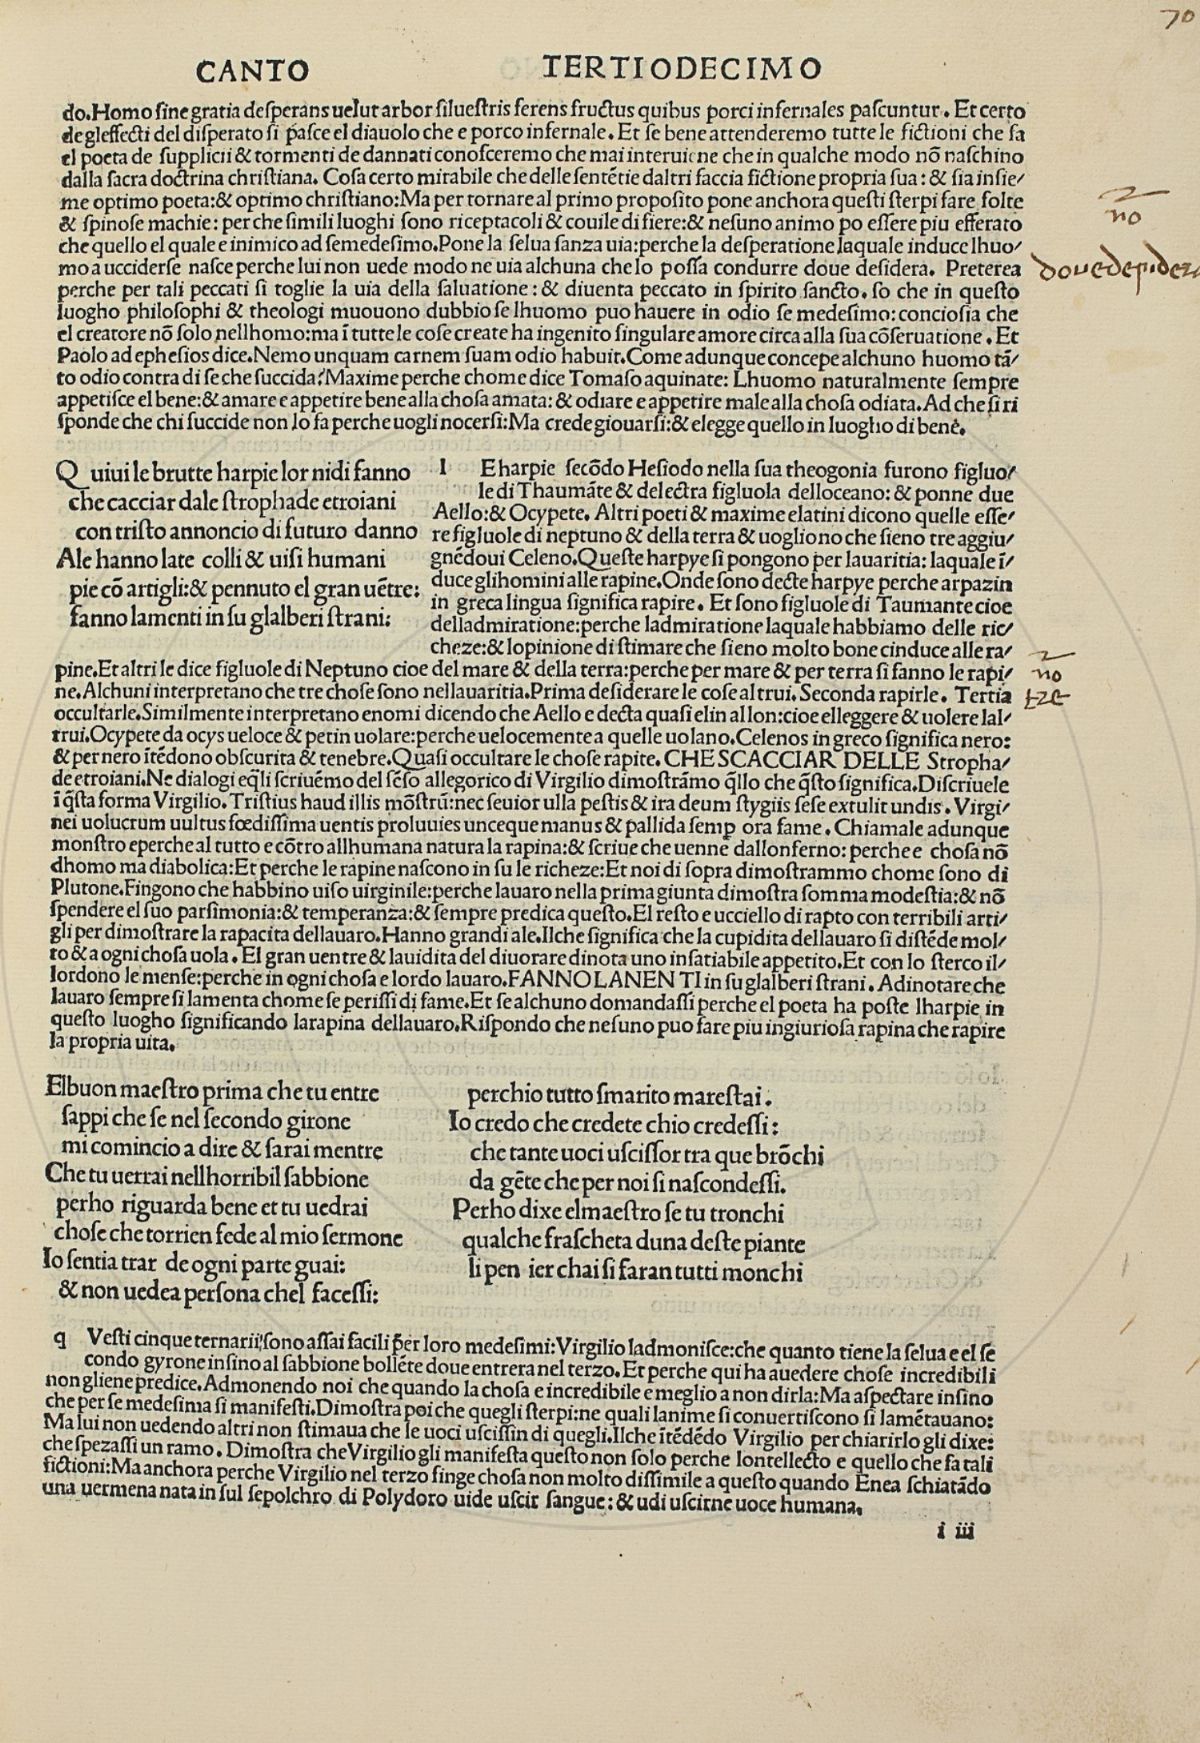 70
CANTO TERTIODECIMO
do.Homo ſine gratia deſperans uelut arbor ſilueſtris ferens fructus quibus porci infernales paſcuntur. Et certo
de gleffecti del diſperato ſi paſce el diauolo che e porco infernale. Et ſe bene attenderemo tutte le fictioni che fa
el poeta de ſupplicii & tormenti de dannati conoſceremo che mai interuiene che in qualche modo nō naſchino
dalla ſacra doctrina chriſtiana. Coſa certo mirabile che delle ſentētie daltri faccia fictione propria ſua: & ſia inſie/
me optimo poeta:& optimo chriſtiano:Ma per tornare al primo propoſito pone anchora queſti ſterpi fare folte
& ſpinoſe machie: perche ſimili luoghi ſono riceptacoli & couile di fiere:& neſuno animo po eſſere piu efferato
che quello el quale e inimico ad ſemedeſimo.Pone la ſelua ſanza uia:perche la deſperatione laquale induce lhuo/
mo a ucciderſe naſce perche lui non uede modo ne uia alchuna che lo poſſa condurre doue deſidera. Preterea
perche per tali peccati ſi toglie la uia della ſaluatione: & diuenta peccato in ſpirito ſancto. ſo che in queſto
luogho philoſophi & theologi muouono dubbio ſe lhuomo puo hauere in odio ſe medeſimo: concioſia che
el creatore nō ſolo nellhomo:ma ī tutte le coſe create ha ingenito ſingulare amore circa alla ſua cōſeruatione. Et
Paolo ad epheſios dice.Nemo unquam carnem ſuam odio habuit.Come adunque concepe alchuno huomo tā/
to odio contra di ſe che ſuccida?Maxime perche chome dice Tomaſo aquinate: Lhuomo naturalmente ſempre
appetiſce el bene:& amare e appetire bene alla choſa amata: & odiare e appetire male alla choſa odiata. Ad che ſi ri
ſponde che chi ſuccide non lo fa perche uogli nocerſi: Ma crede giouarſi:& elegge quello in luogho di bene.
no
doue deſidera
Quiui le brutte harpie lor nidi fanno
che cacciar dale ſtrophade etroiani
con triſto annoncio di futuro danno
Ale hanno late colli & uiſi humani
pie cō artigli:& pennuto el gran uētre:
fanno lamenti in ſu glalberi ſtrani:
l Eharpie ſecōdo Heſiodo nella ſua theogonia furono figluo/
le di Thaumāte & delectra figluola delloceano: & ponne due
Aello:& Ocypete. Altri poeti & maxime elatini dicono quelle eſſe/
re figluole di neptuno & della terra & uogliono che ſieno tre aggiu/
gnēdoui Celeno.Queſte harpye ſi pongono per lauaritia: laquale ī/
duce glihomini alle rapine.Onde ſono decte harpye perche arpazin
in greca lingua ſignifica rapire. Et ſono figluole di Taumante cioe
delladmiratione:perche ladmiratione laquale habbiamo delle ric/
cheze:& lopinione di ſtimare che ſieno molto bone cinduce alle ra/
pine.Et altri le dice figluole di Neptuno cioe del mare & della terra:perche per mare & per terra ſi fanno le rapi/
ne.Alchuni interpretano che tre choſe ſono nellauaritia.Prima deſiderare le coſe altrui.Seconda rapirle. Tertia
occultarle.Similmente interpretano enomi dicendo che Aello e decta quaſi elin allon:cioe elleggere & uolere lal/
trui.Ocypete da ocys ueloce & petin uolare:perche uelocemente a quelle uolano.Celenos in greco ſignifica nero:
& per nero ītēdono obſcurita & tenebre.Quaſi occultare le choſe rapite. CHE SCACCIAR DELLE Stropha/
de etroiani.Ne dialogi eq̄li ſcriuēmo del ſēſo allegorico di Virgilio dimoſtrāmo q̄llo che q̄ſto ſignifica.Diſcriuele
ī q̄ſta forma Virgilio.Triſtius haud illis mōſtrū:nec ſeuior ulla peſtis & ira deum ſtygiis ſeſe extulit undis. Virgi/
nei uolucrum uultus fœdiſſima uentis proluuies unceque manus & pallida ſemp ora fame. Chiamale adunque
monſtro eperche al tutto e cōtro allhumana natura la rapina:& ſcriue che uenne dallonferno: perche e choſa nō
dhomo ma diabolica:Et perche le rapine naſcono in ſu le richeze:Et noi di ſopra dimoſtrammo chome ſono di
Plutone.Fingono che habbino uiſo uirginile:perche lauaro nella prima giunta dimoſtra ſomma modeſtia:& nō
ſpendere el ſuo parſimonia:& temperanza:& ſempre predica queſto.El reſto e ucciello di rapto con terribili arti/
gli per dimoſtrare la rapacita dellauaro.Hanno grandi ale.Ilche ſignifica che la cupidita dellauaro ſi diſtēde mol/
to & a ogni choſa uola. El gran uentre & lauidita del diuorare dinota uno inſatiabile appetito.Et con lo ſterco il/
lordono le menſe:perche in ogni choſa e lordo lauaro.FANNO LANENTI in ſu glalberi ſtrani. Adinotare che
lauaro ſempre ſi lamenta chome ſe periſſi di fame.Et ſe alchuno domandaſſi perche el poeta ha poſte lharpie in
queſto luogho ſignificando la rapina dellauaro.Riſpondo che neſuno puo fare piu ingiurioſa rapina che rapire
la propria uita.
no
tze
Elbuon maeſtro prima che tu entre
ſappi che ſe nel ſecondo girone
mi comincio a dire & ſarai mentre
Che tu uerrai nellhorribil ſabbione
perho riguarda bene et tu uedrai
choſe che torrien fede al mio ſermone
Io ſentia trar de ogni parte guai:
& non uedea perſona chel faceſſi:
perchio tutto ſmarito mareſtai:
Io credo che credete chio credeſſi:
che tante uoci uſciſſor tra que brōchi
da gēte che per noi ſi naſcondeſſi.
Perho dixe elmaeſtro ſe tu tronchi
qualche fraſcheta duna deſte piante
li pen ier chai ſi faran tutti monchi
q Veſti cinque ternarii ſono aſſai facili per loro medeſimi:Virgilio ladmoniſce:che quanto tiene la ſelua e el ſe
condo gyrone inſino al ſabbione bollēte doue entrera nel terzo. Et perche qui ha auedere choſe incredibili
non gliene predice.Admonendo noi che quando la choſa e incredibile e meglio a non dirla:Ma aſpectare inſino
che per ſe medeſima ſi manifeſti.Dimoſtra poi che quegli ſterpi:ne quali lanime ſi conuertiſcono ſi lamētauano:
Ma lui non uedendo altri non ſtimaua che le uoci uſciſſin di quegli.Ilche ītēdēdo Virgilio per chiarirlo gli dixe:
che ſpezaſſi un ramo. Dimoſtra che Virgilio gli manifeſta queſto non ſolo perche lontellecto e quello che fa tali
fictioni:Ma anchora perche Virgilio nel terzo finge choſa non molto diſſimile a queſto quando Enea ſchiatādo
una uermena nata in ſul ſepolchro di Polydoro uide uſcir ſangue: & udi uſcirne uoce humana.
i iii